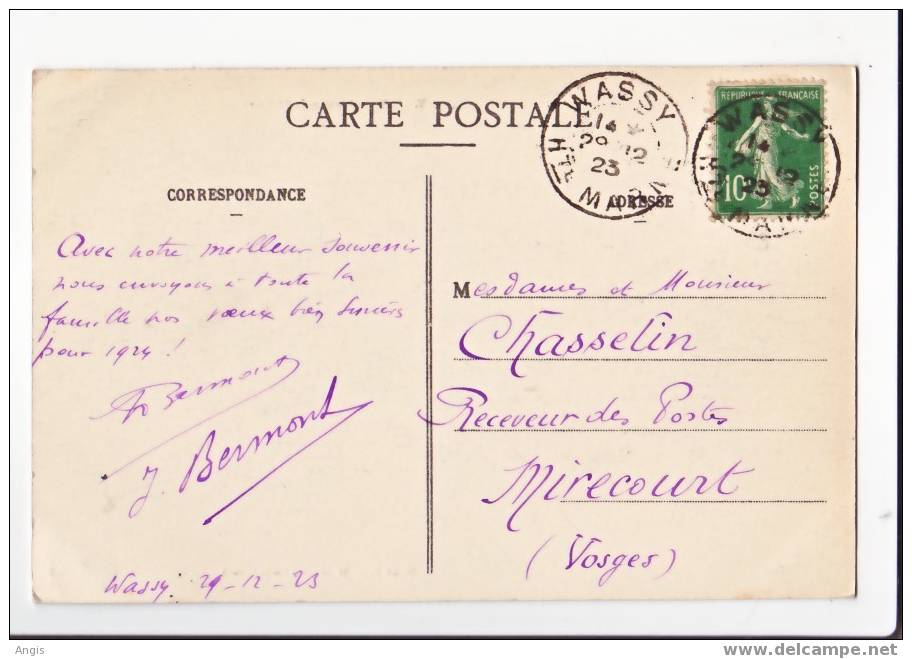 CARTE POSTALE
WASSY
14 *
29 12
23
HTE MARNE
REPUBLIQUE FRANÇAISE
10
POSTES
WASSY
14
12
23
CORRESPONDANCE
ADRESSE
Avec notre meilleur souvenir
nous envoyons à toute la
famille nos voeux bien sincères
pour 1924 !
Bermont
J. Bermont
Wassy. 29-12-23
Mesdames et Monsieur
Chasselin
Receveur des Postes
Mirecourt
(Vosges)
Angis
www.delcampe.net